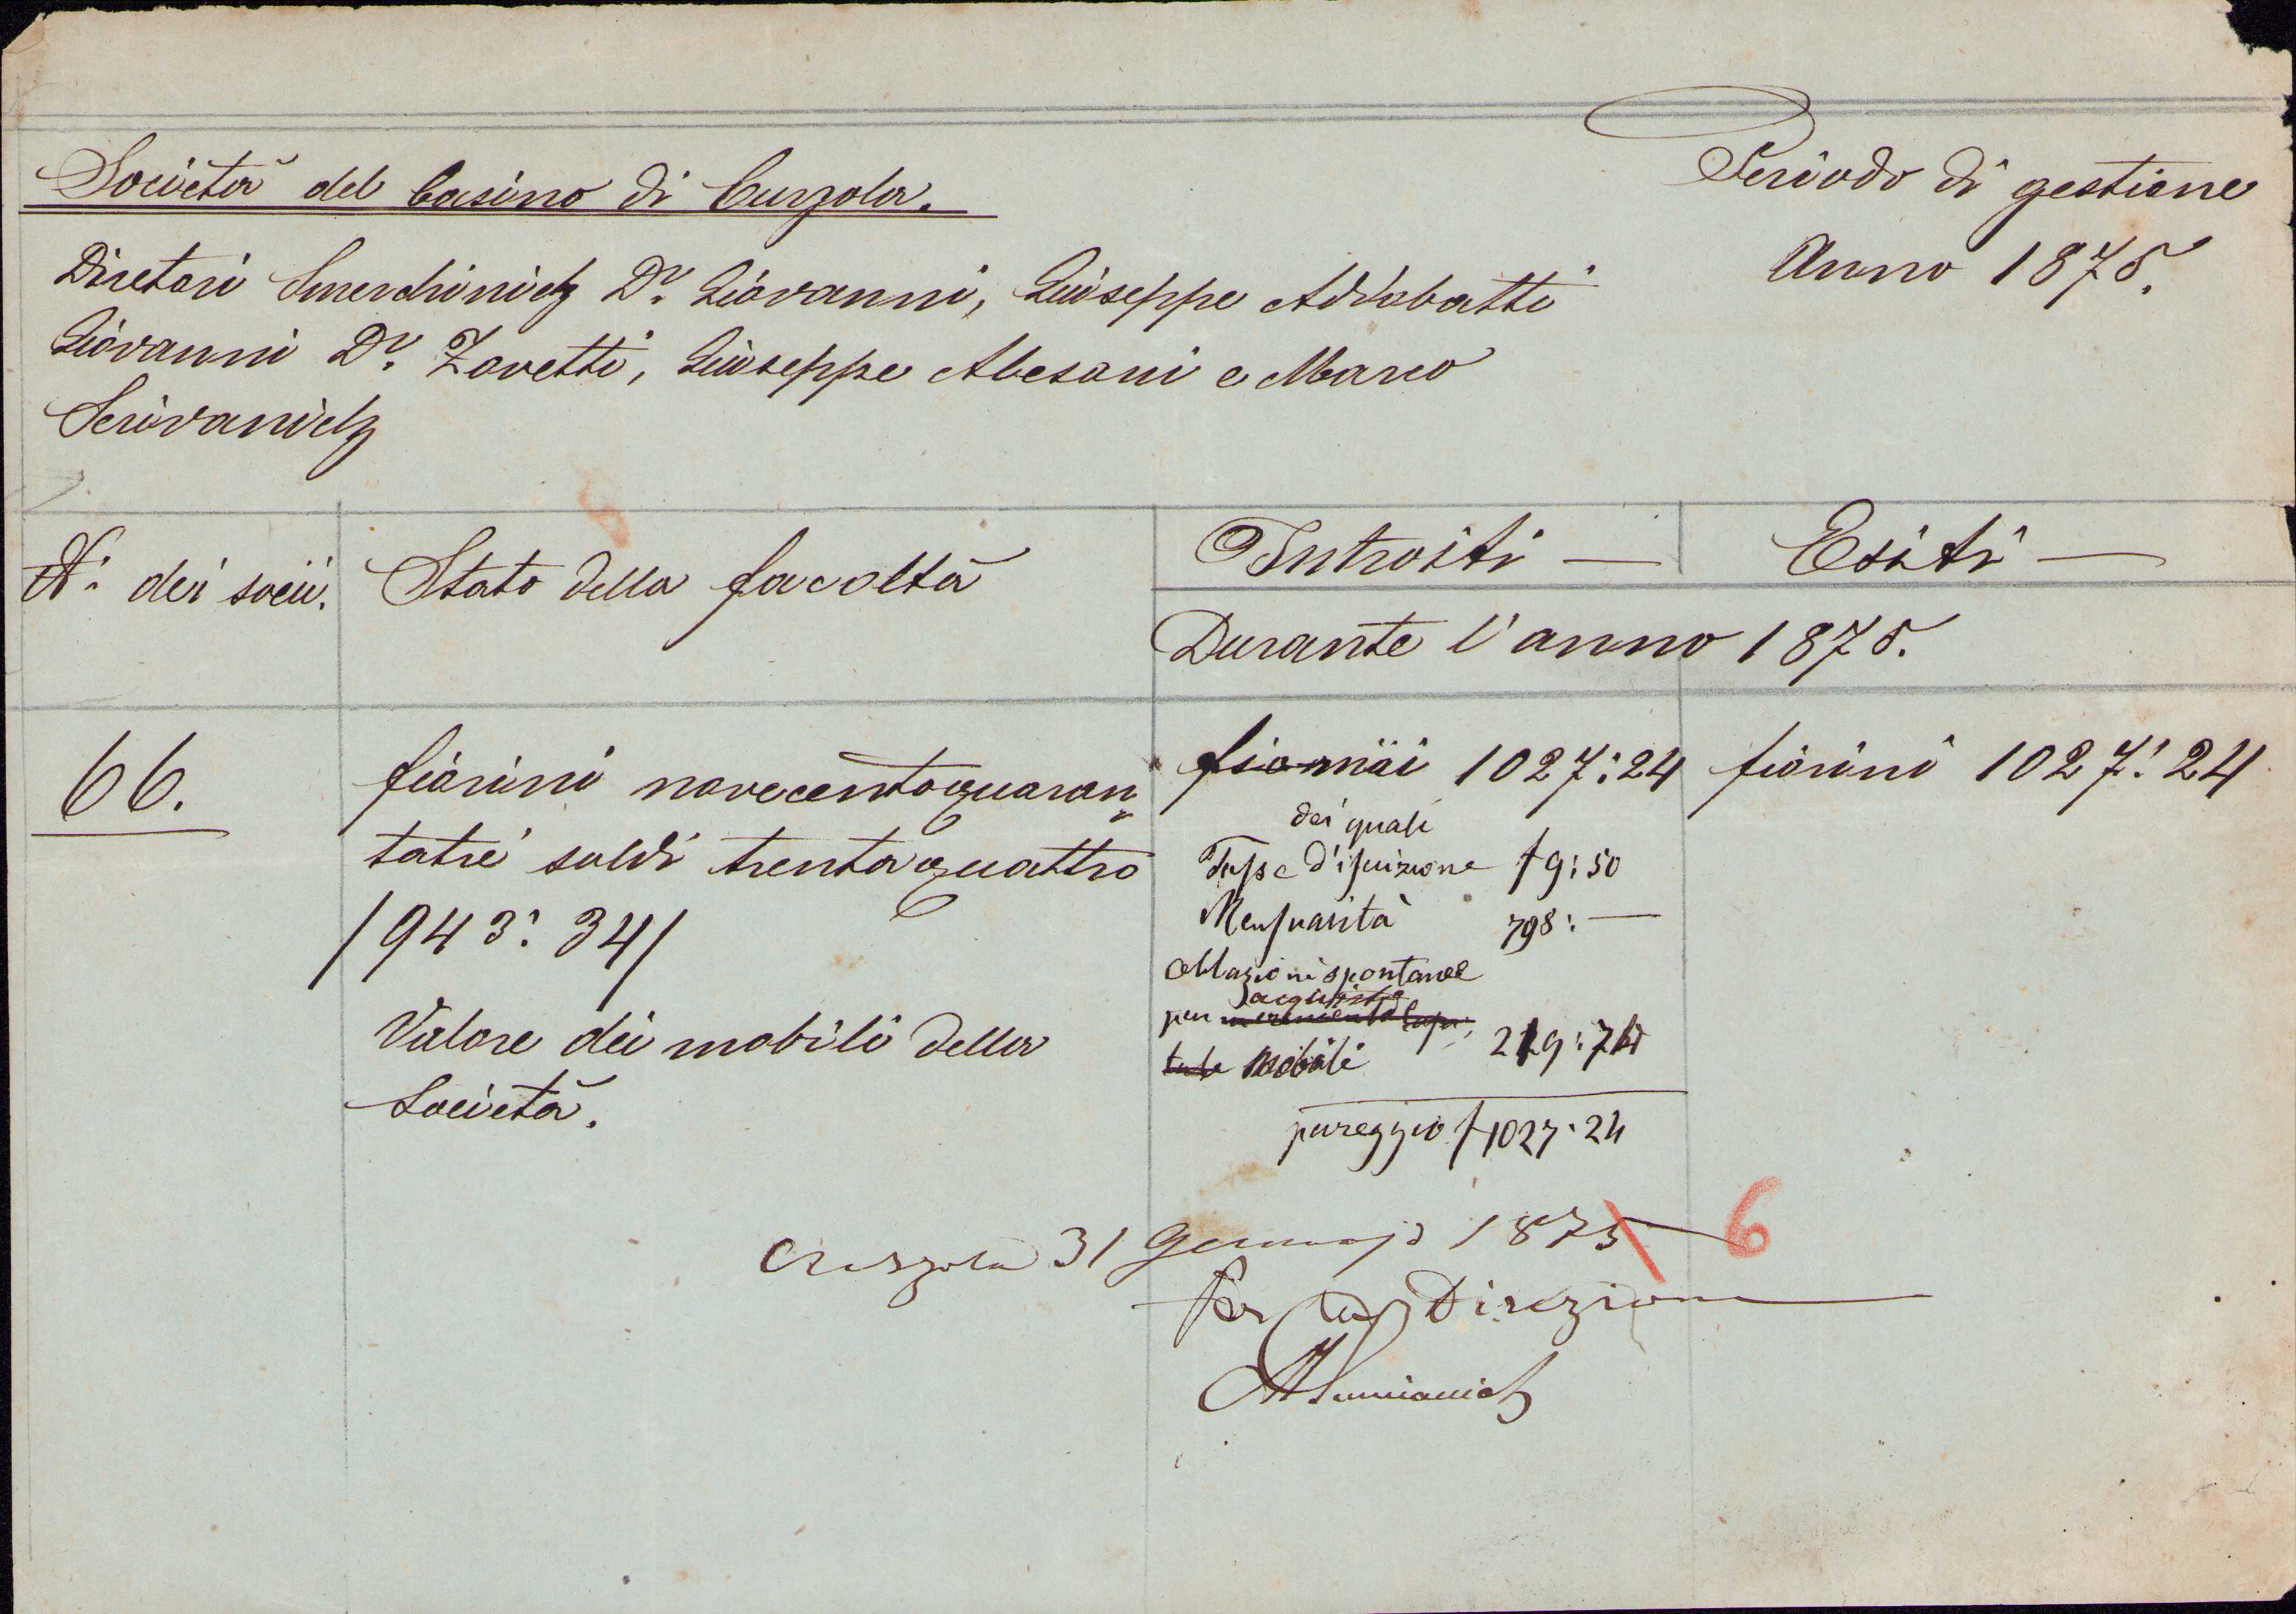 Società del Casino di Curzola.
Periodo di gestione
Anno 1875.
Diretori Smerchinich Dr. Giovanni, Giuseppe Addobatti
Giovanni Dr. Zavetti, Giuseppe Abesani e Marco
Scrivanich
N. dei socii.
Stato della facoltà
Introiti —
Esiti —
Durante l'anno 1875.
66.
fiorini novecentoquaran
tatré soldi trentaquattro
/943: 34/
Valore dei mobili della
Società.
fiorini 1027:24
dei quali
Tasse d'iscrizione f 9:50
Mensualità 798: —
Oblazioni spontanee
acquisto
per
mobili 219:74
pareggio f 1027:24
fiorini 1027:24
Curzola 31 Gennajo 1875 6
Per la Direzione